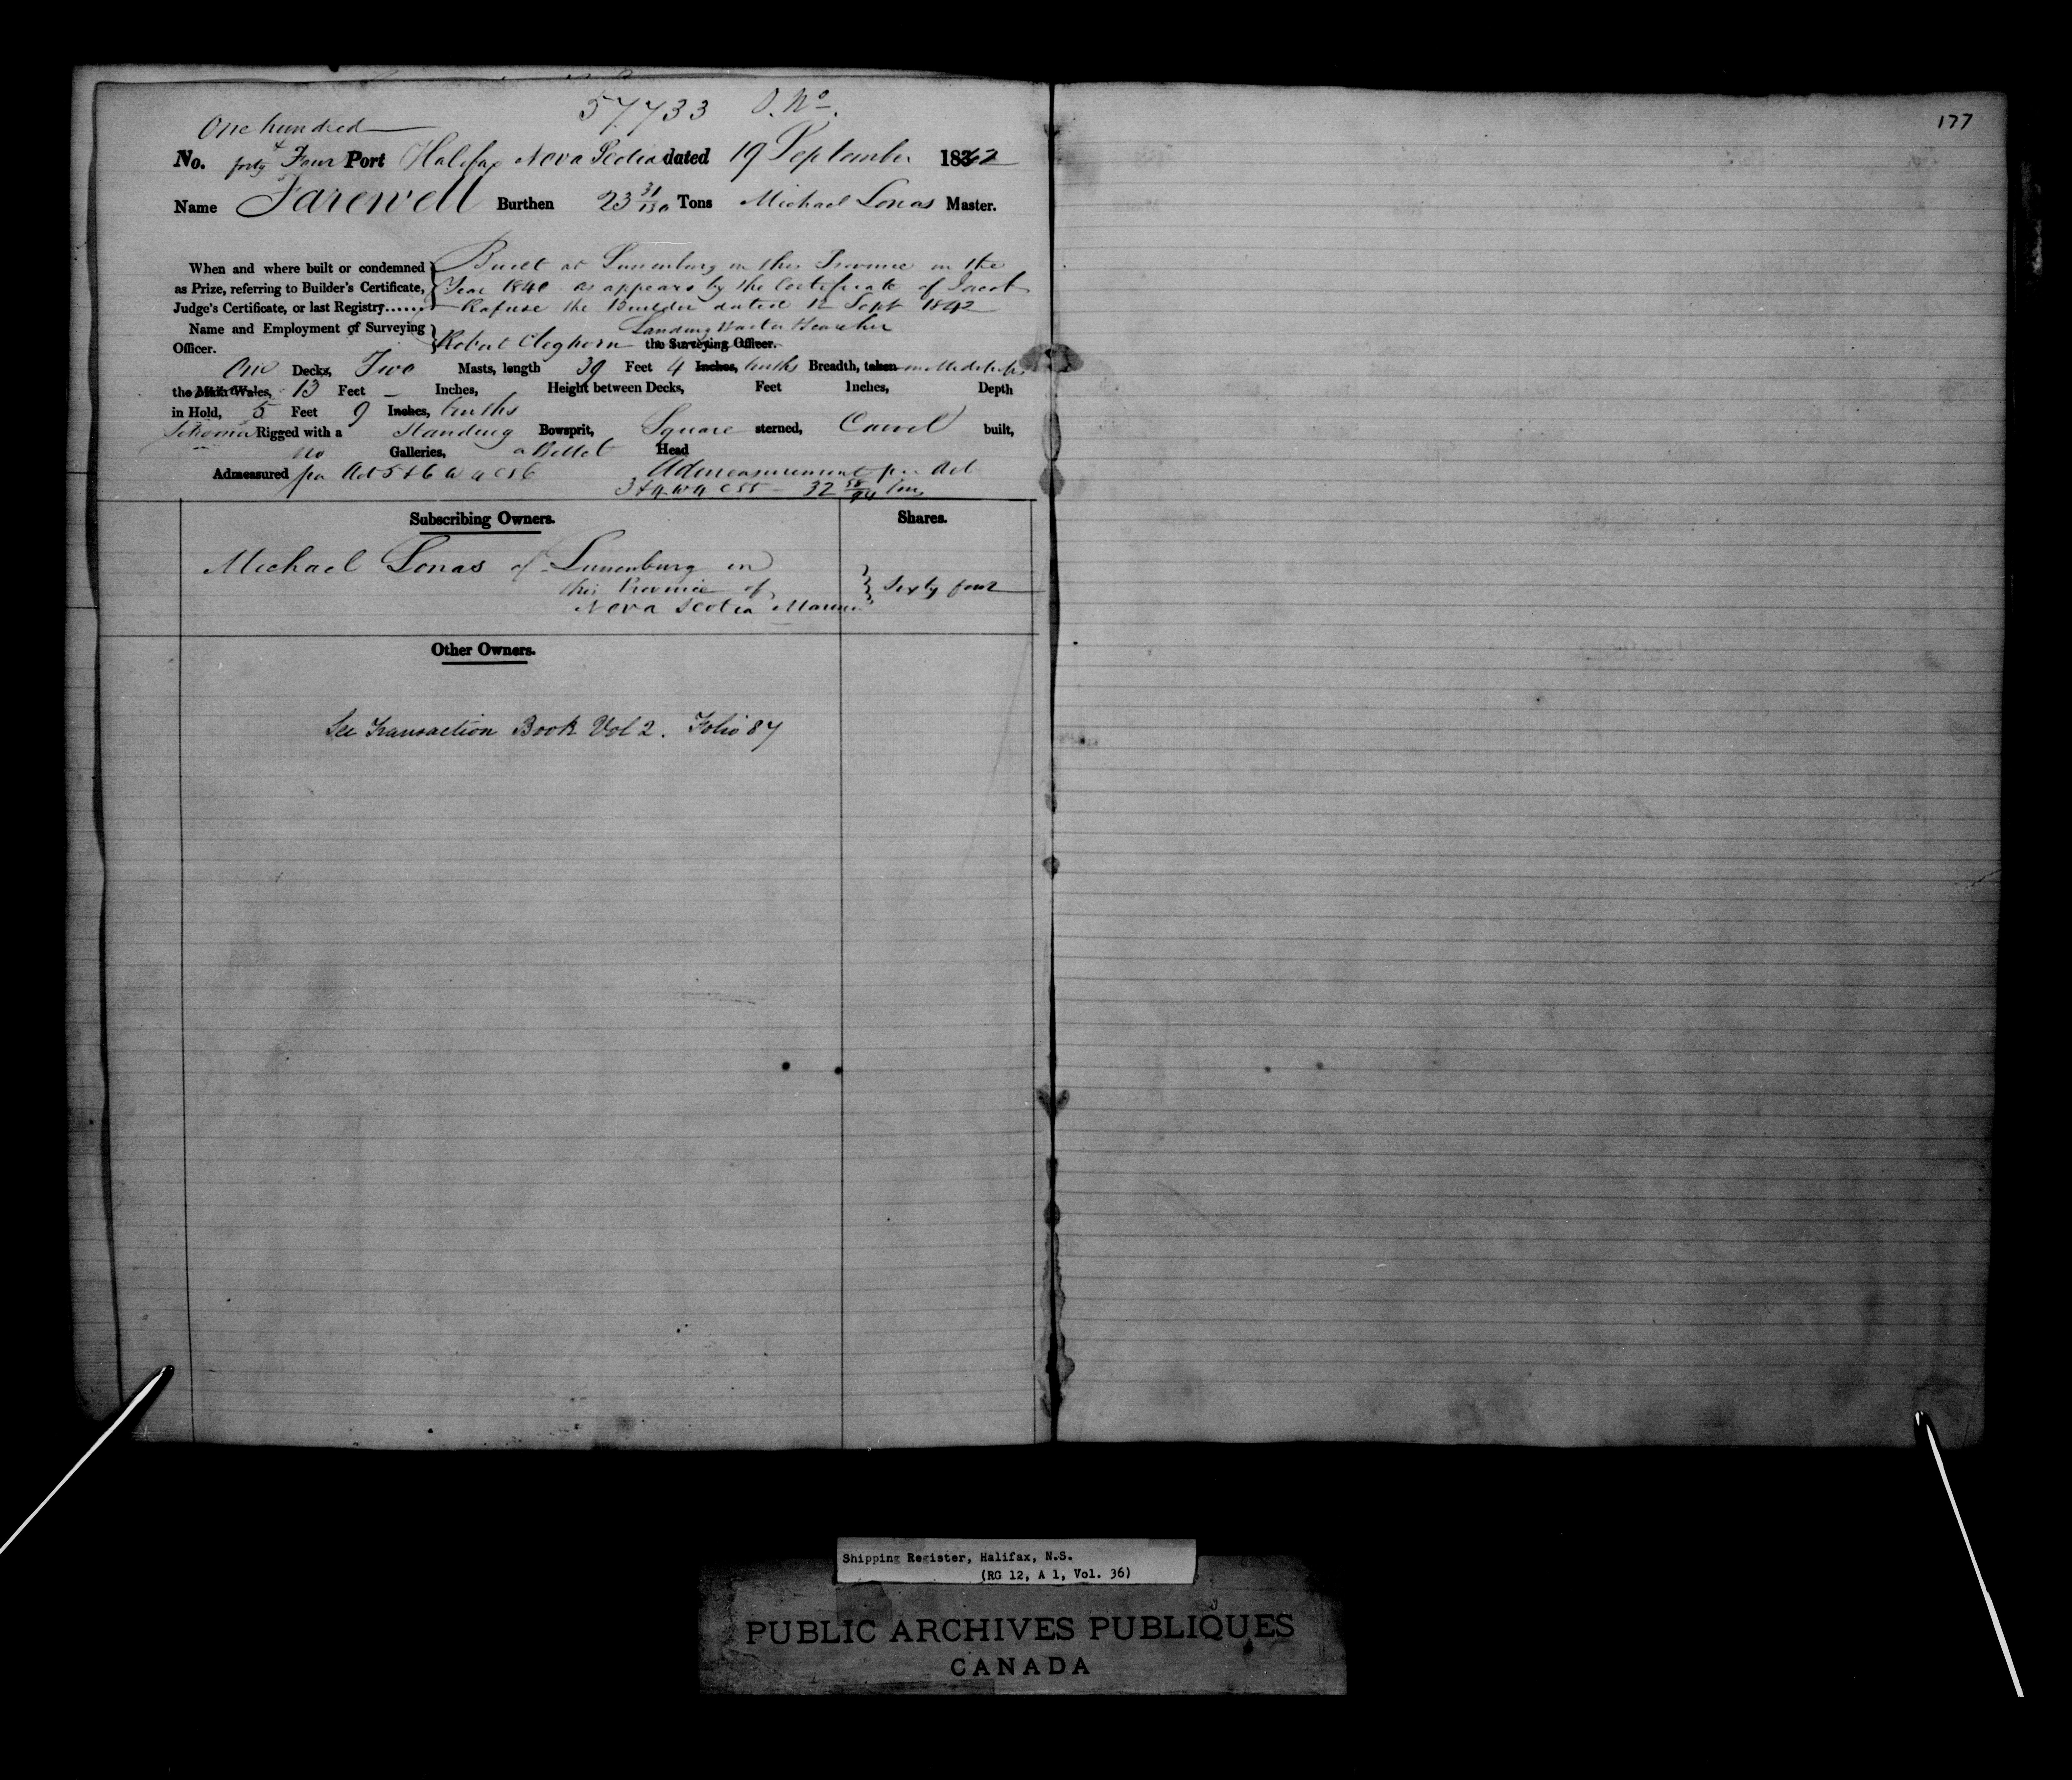 57733 O. No.
177
One hundred
No. forty & Four Port Halifax Nova Scotia dated 19 September 1842
Name Farewell Burthen 23 31/130 Tons Michael Lonas Master.
When and where built or condemned Built at Lunenburg in this Province in the
as Prize, referring to Builder's Certificate, Year 1840 as appears by the Certificate of Jacob
Judge's Certificate, or last Registry...... Rafuse the Builder dated 12 Sept 1842
Name and Employment of Surveying Landing Waiter & Searcher
Officer. Robert Cleghorn the Surveying Officer.
One Decks, Two Masts, length 39 Feet 4 Inches, tenths Breadth, taken in Midships
the Main Wales, 13 Feet – Inches, Height between Decks, Feet Inches, Depth
in Hold, 5 Feet 9 Inches, tenths
Schooner Rigged with a Standing Bowsprit, Square sterned, Carvel built,
no Galleries, a Billet Head
Admeasured per Act 5 & 6 W 4 C 56 Admeasurement per Act
3 & 4 W 4 C 55 – 32 58/94 tons
Subscribing Owners. Shares.
Michael Lonas of Lunenburg in
this Province of Sixty four
Nova Scotia Mariner
Other Owners.
See Transaction Book Vol 2. Folio 87
Shipping Register, Halifax, N.S.
(RG 12, A 1, Vol. 36)
PUBLIC ARCHIVES PUBLIQUES
CANADA